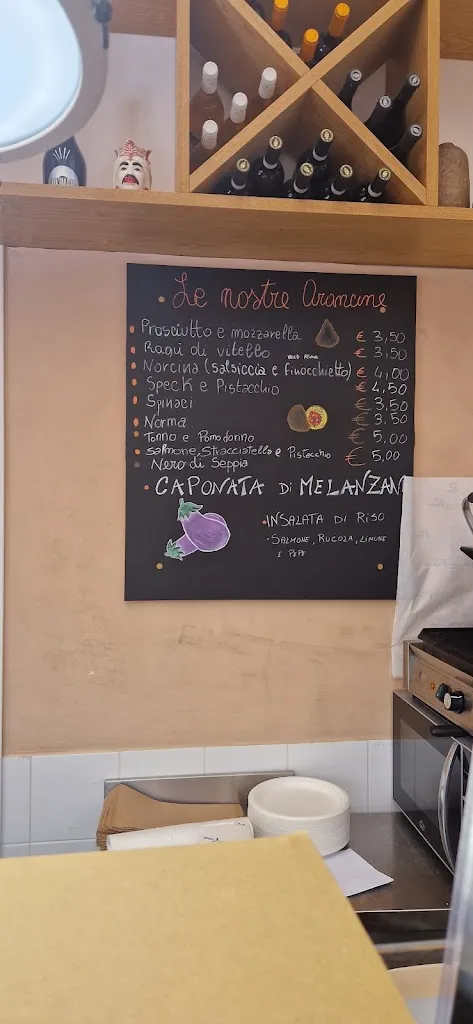 Le nostre Arancine
Prosciutto e mozzarella € 3,50
Ragù di vitello € 3,50
Norcina (salsiccia e finocchietto) € 4,00
Speck e Pistacchio € 4,50
Spinaci € 3,50
Norma € 3.50
Tonno e Pomodorino € 5,00
Salmone, Stracciatella e Pistacchio € 5,00
Nero di Seppia
CAPONATA Di MELANZAN
INSALATA DI RISO
SALMONE, RUCOLA, LIMONE
E PEPE